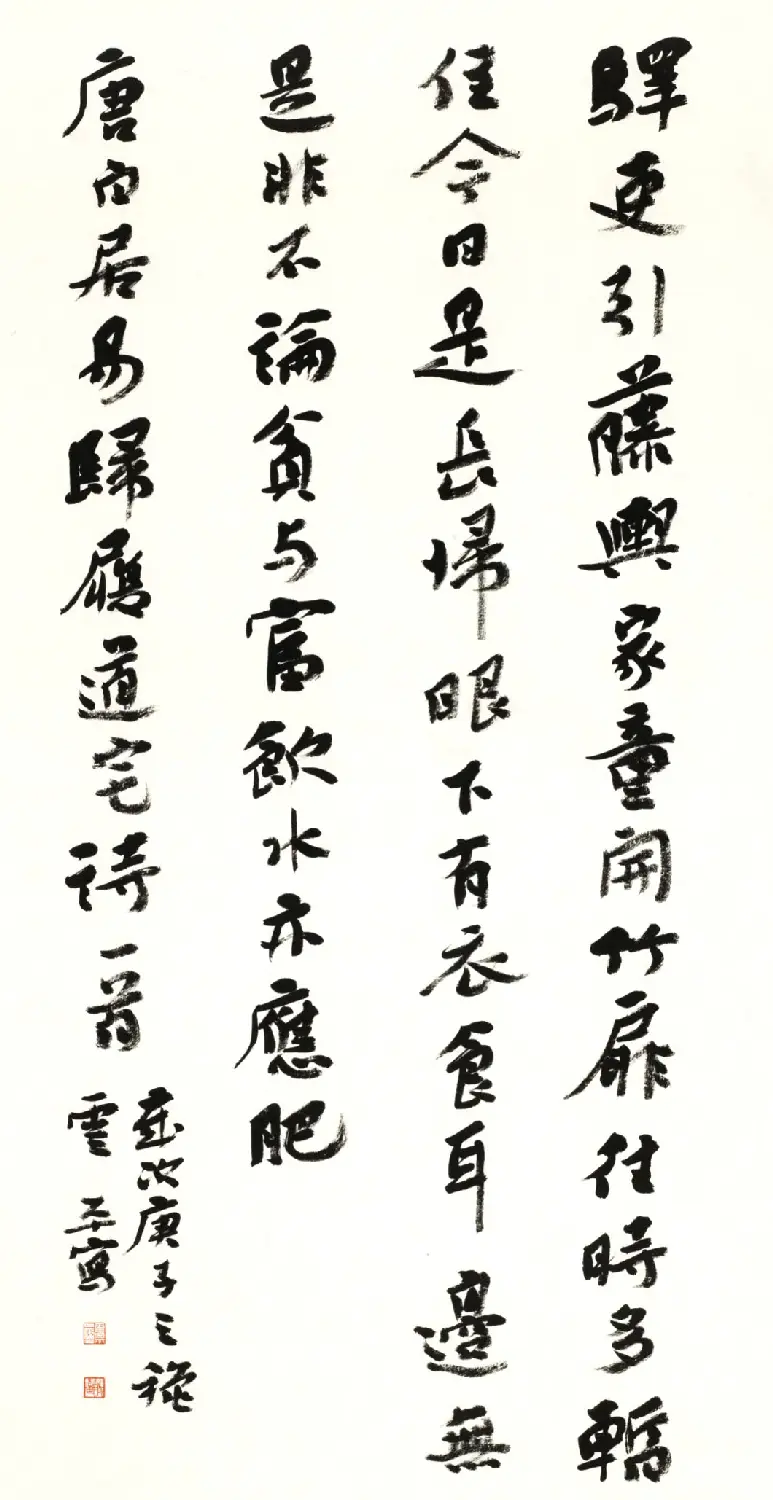 驛吏引藤輿家童開竹扉往時多暫
住今日是長歸眼下有衣食耳邊無
是非不論貧与富飲水亦應肥
唐白居易歸履道宅詩一首
歲次庚子之穐
雲平寫